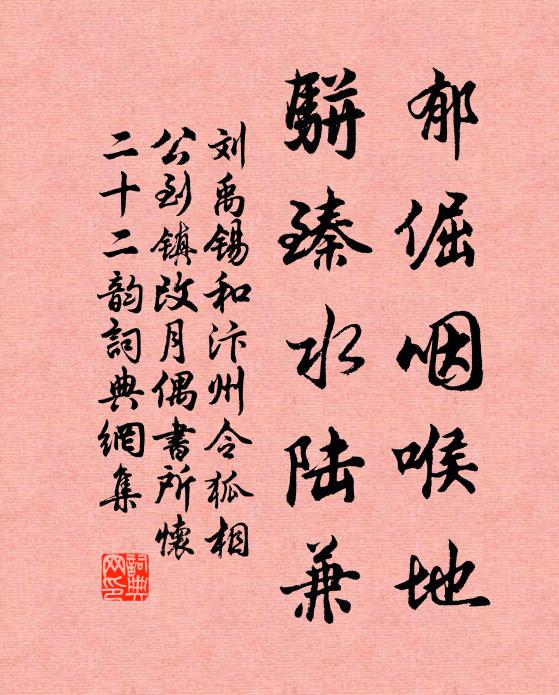 郁倔咽喉地
駢臻水陆兼
刘禹锡和汴州令狐相
公到镇改月偶書所懷
二十二韵詞典網集
詞典网印